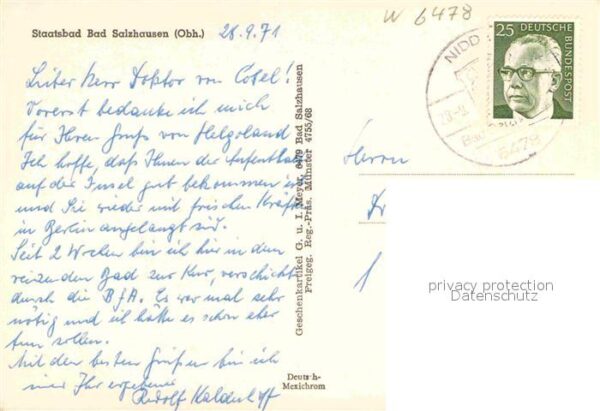 W 6478
Staatsbad Bad Salzhausen (Obh.) 28.9.71
Lieber Herr Doktor von Cosel!
Vorerst bedanke ich mich
für Ihren Gruß von Helgoland
Ich hoffe, daß Ihnen der Aufenthalt
auf der Insel gut bekommen ist
und Sie wieder mit frischen Kräften
in Berlin angelangt sind.
Seit 2 Wochen bin ich hier in dem
reizenden Bad zur Kur, verschickt
durch die BfA. Es war mal sehr
nötig und ich hätte es schon eher
tun sollen.
Mit den besten Grüßen bin ich
immer Ihr ergebener
Rudolf Kaldenhoff
Geschenkartikel G. u. I. Meyer, 6479 Bad Salzhausen
Freigeg. Reg.-Präs. Münster 4755/68
Deutsch-
Mexichrom
25 DEUTSCHE
BUNDESPOST
NIDD
Bad
6478
Herrn
Dr
privacy protection
Datenschutz